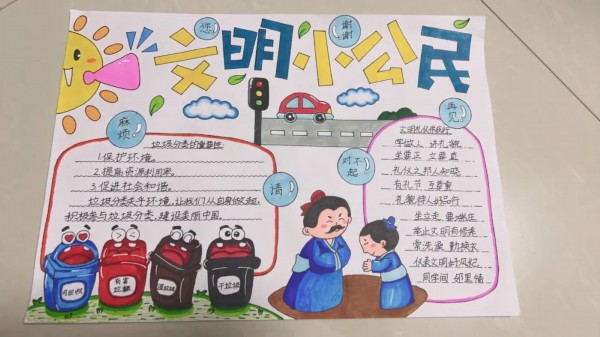 您
谢谢
文明小公民
麻烦
请
对不起
再见
垃圾分类的重要性:
1.保护环境。
2.提高资源利用率。
3.促进社会和谐。
垃圾分类关乎环境,让我们从自身做起,
积极参与垃圾分类,建设美丽中国。
可回收
有害垃圾
湿垃圾
干垃圾
学做人 讲礼貌
坐要正 立要直
礼仪之邦人知晓
有礼节 互尊重
礼貌待人好品行
举止文明有修养
常洗澡 勤换衣
仪表文明好风纪
同学间